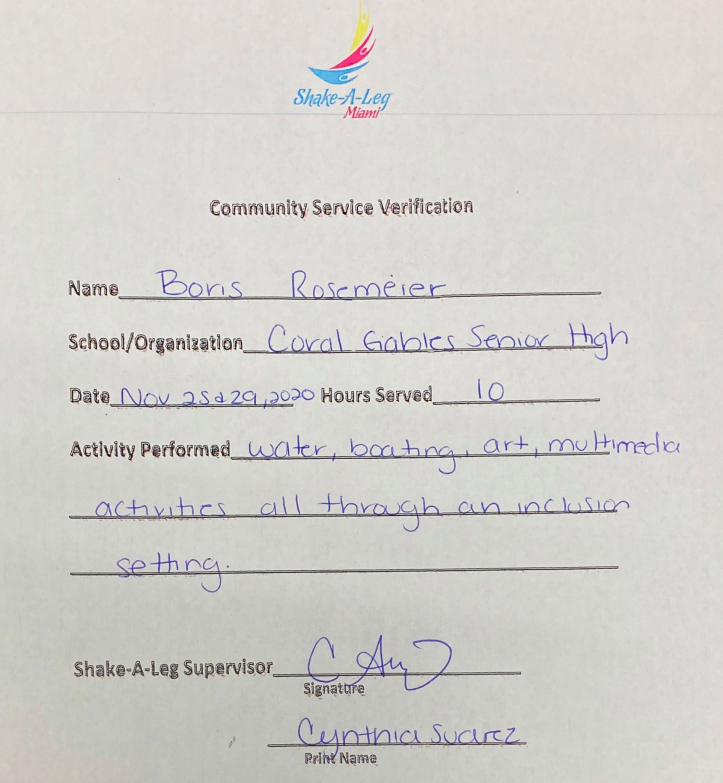 Shake-A-Leg
Miami
Community Service Verification
Name Boris Rosemeier
School/Organization Coral Gables Senior High
Date Nov 28 & 29, 2020 Hours Served 10
Activity Performed water, boating, art, multimedia
activities all through an inclusion
setting.
Shake-A-Leg Supervisor
Signature
Cynthia Suarez
Print Name